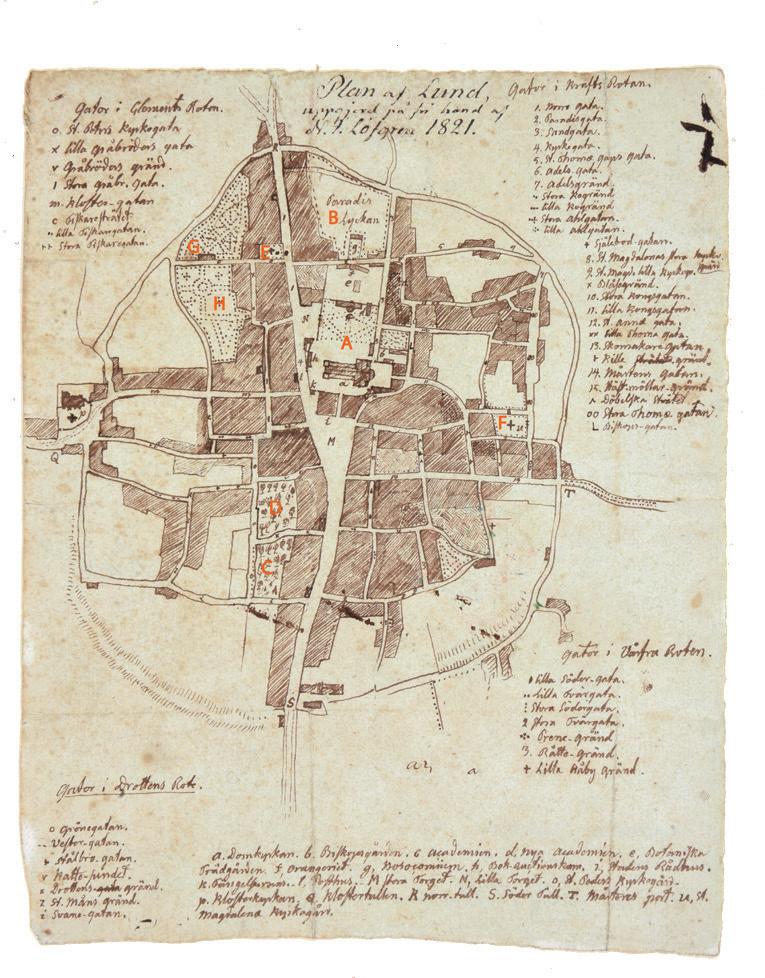 Plan af Lund,
uppgjord på fri hand af
N. J. Löfgren 1821.
7
Gator i Clements Roten.
o. St. Petris Kyrkogata
x lilla Gråbröders gata
v Gråbröders gränd.
1 Stora gråbr. gata.
m. Kloster-gatan
c Fiskaresträtet
lilla Fiskaregatan.
Stora Fiskaregatan.
Gator i Krafts Rotan.
1. Norre gata.
2. Paradisgata.
3. Sandgata.
4. Kyrkogata.
5. St. Thomæ gaps gata.
6. Adels gata.
7. Adelsgränd.
Stora Kogränd
lilla Kogränd
Stora Ahlgatan.
lilla Ahlgatan.
+ Själebod-gatan.
8. St. Magdalenas stora Kyrkogr.
9. St. Magd. lilla Kyrkogr.
x Blåsegränd.
10. Stora Kongsgatan.
11. lilla Kongsgatan.
12. St. Annæ gata.
lilla Thomæ gata.
13. Skomakare Gatan.
Kille gränd.
14. Mårtens Gatan.
15. Häst-möllar-gränd.
Döbelska Strätet
oo Stora Thomæ gatan
L Biskops-gatan.
Paradis
Lyckan
B
G
E
H
A
F
D
C
M
N
Q
T
S
Gator i Vårfru Roten.
lilla Söder-gata.
lilla Tvärgata.
Stora Södergata.
2 stora Tvärgata.
Prene-gränd
3. Råtte-gränd.
+ Lilla Råby Gränd.
Gator i Drottens Rote.
o Grönegatan.
Vester-gatan.
+ Stålbro-gatan.
v Katte-sundet.
Drottens gränd.
2 St. Måns gränd.
i Svane-gatan.
a. Domkyrkan. b. Biskopsgården. c Academien. d. nya Academien. e, Botaniska
Trädgården. f, Orangeriet. g, Nosocomium. h, Bok-auctionskam. i, Stadens Rådhus.
k. Fängelserum. l. Posthus. M stora Torget. N, lilla Torget. o, St. Peders Kyrkogård.
p. Klosterkyrkan. Q Klostertullen. R norr-tull. S. Söder Tull. T. Mårtens port. u, St.
Magdalenæ Kyrkogård.